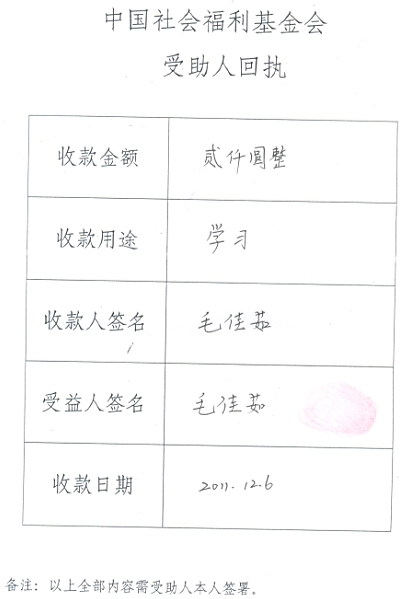 中国社会福利基金会
受助人回执
收款金额 贰仟圆整
收款用途 学习
收款人签名 毛佳茹
受益人签名 毛佳茹
收款日期 2011.12.6
备注：以上全部内容需受助人本人签署。